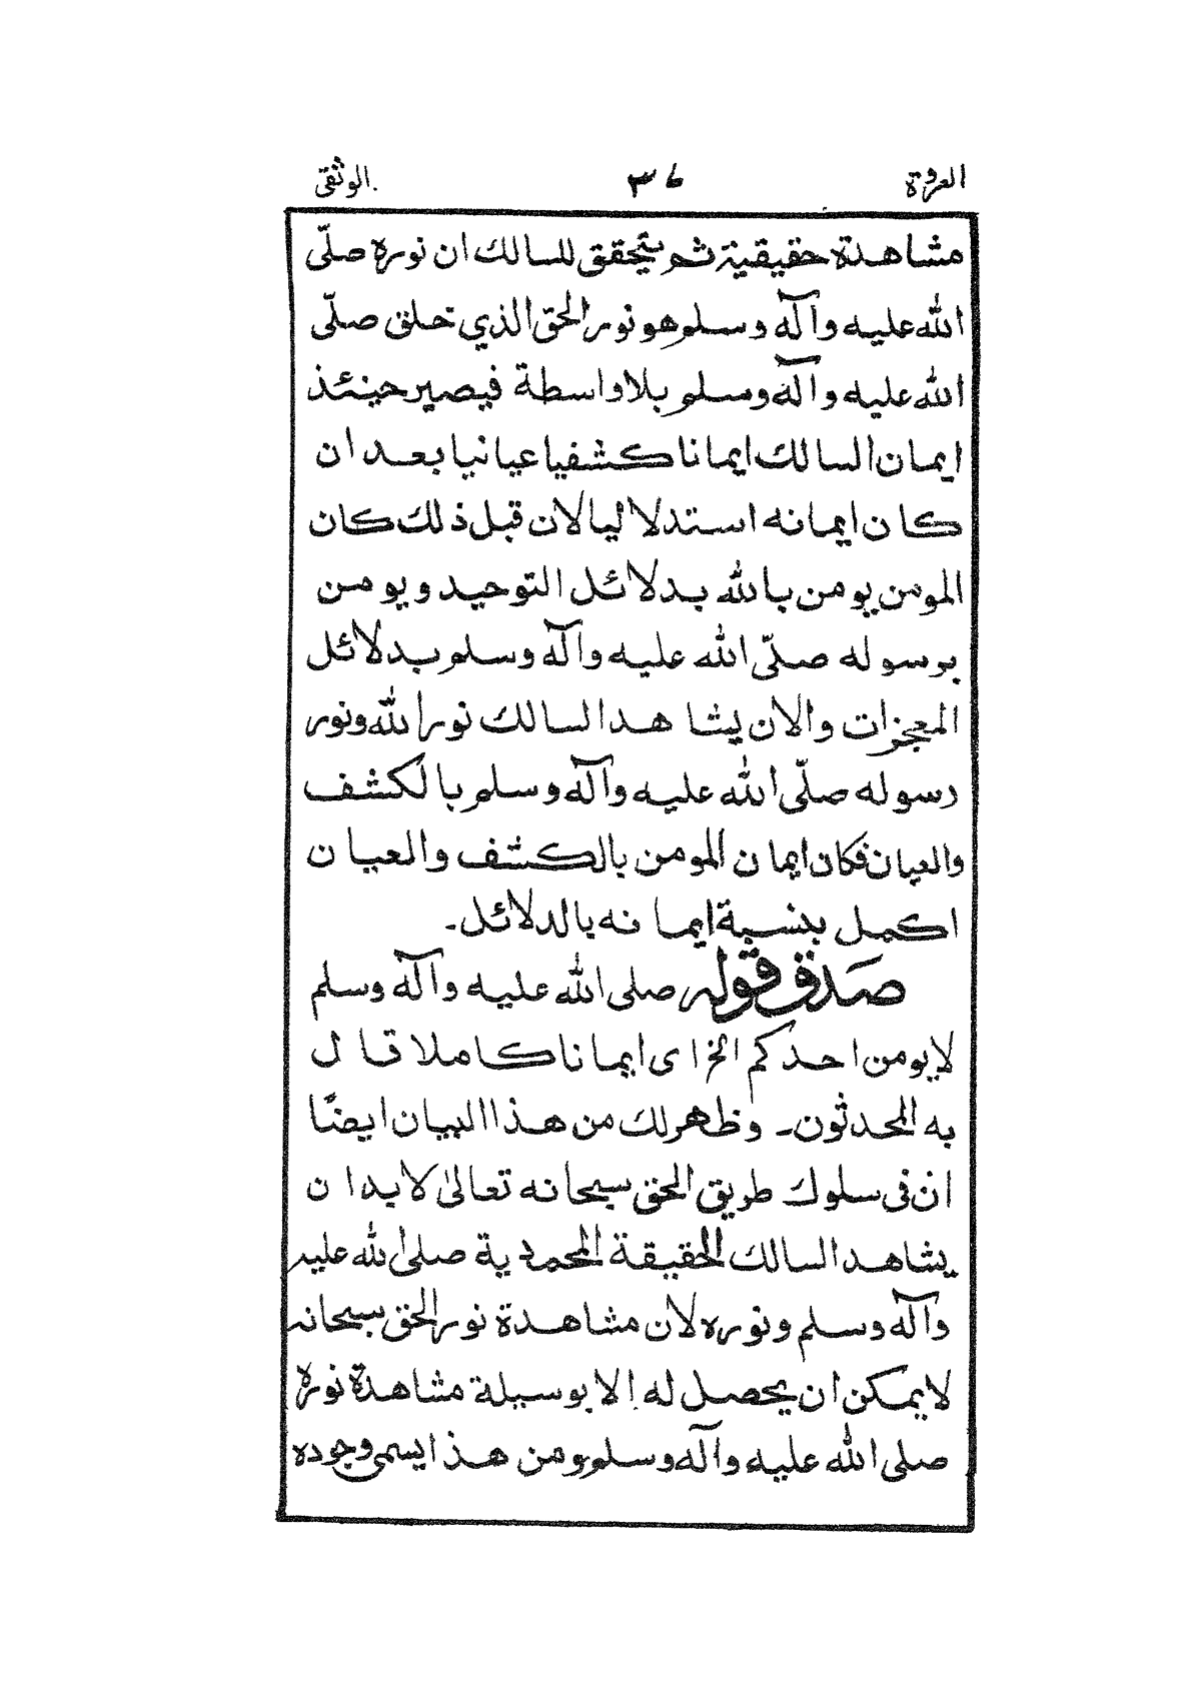 العروة ٣٧ الوثقى
مشاهدة حقيقية ثم يتحقق للسالك ان نوره صلّى
الله عليه وآله وسلم هو نور الحق الذي خلق صلّى
الله عليه وآله وسلم بلا واسطة فيصير حينئذ
ايمان السالك ايمانا كشفيا عيانيا بعد ان
كان ايمانه استدلاليا لان قبل ذلك كان
المومن يومن بالله بدلائل التوحيد ويومن
برسوله صلّى الله عليه وآله وسلم بدلائل
المعجزات والان يشاهد السالك نور الله ونور
رسوله صلّى الله عليه وآله وسلم بالكشف
والعيان فكان ايمان المومن بالكشف والعيان
اكمل بنسبة ايمانه بالدلائل۔
صدق قوله صلى الله عليه وآله وسلم
لا يومن احدكم الخ اى ايمانا كاملا قال
به المحدثون۔ وظهر لك من هذا البيان ايضًا
ان فى سلوك طريق الحق سبحانه تعالىٰ لابد ان
يشاهد السالك الحقيقة المحمدية صلى الله عليه
وآله وسلم ونوره لان مشاهدة نور الحق سبحانه
لا يمكن ان يحصل له الا بوسيلة مشاهدة نوره
صلى الله عليه وآله وسلم ومن هذا يسمى وجوده